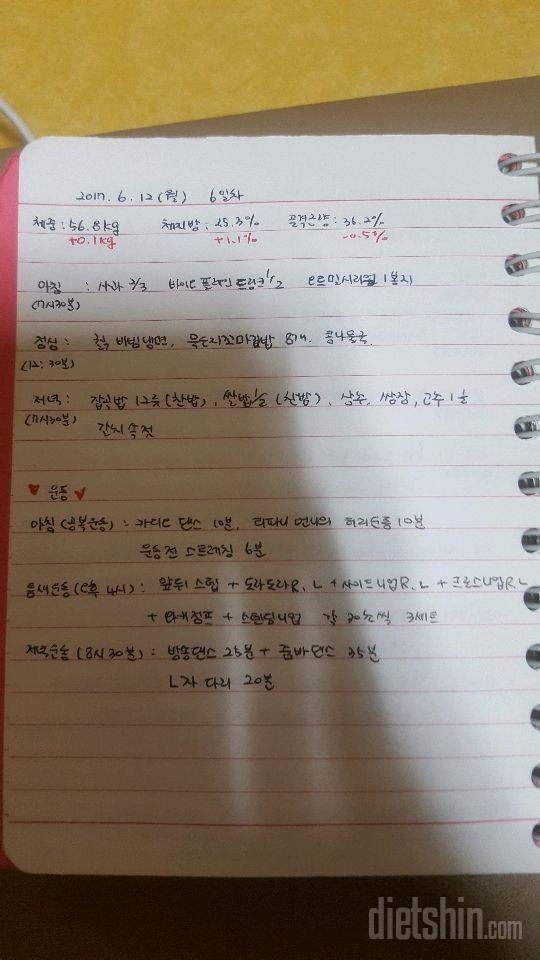 2017. 6. 12 (월) 6일차
체중: 56.8kg 체지방: 25.3% 골격근량: 36.2%
+0.1kg +1.1% -0.5%
아침 : 사과 2/3 바이오 플레인 드링크 1/2 오트밀시리얼 1봉지
(7시30분)
점심: 칡비빔냉면, 묵은지꼬마김밥 8개. 콩나물국
(12:30분)
저녁: 잡곡밥 12곡(찬밥), 쌀밥 1/2 (찬밥), 상추, 쌈장, 고추 1개
(7시30분) 갈치속젓
♥ 운동 ♥
아침(공복운동) : 카디오 댄스 10분, 티파니 언니의 허리운동 10분
운동전 스트레칭 6분
틈새운동(오후 4시) : 앞뒤 스텝 + 도라도라 R, L + 사이드니업 R, L + 크로스니업 R, L
+ 와이점프 + 스탠딩니업 각 30초씩 3세트
저녁운동 (8시30분) : 방송댄스 25분 + 줌바댄스 35분
L자 다리 20분
dietshin.com